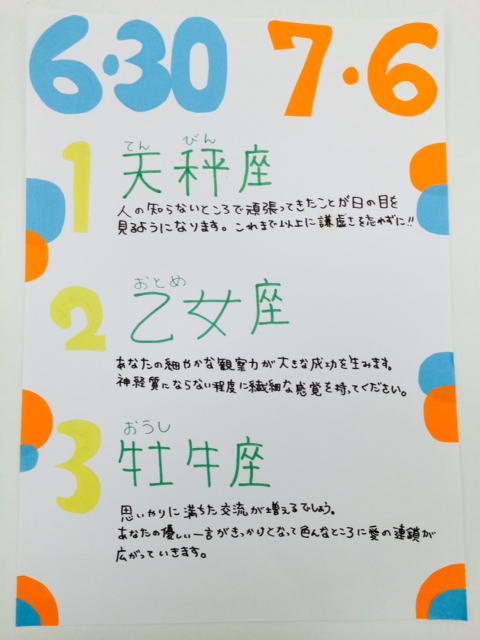 6・30 7・6
1 天秤座
てんびん
人の知らないところで頑張ってきたことが日の目を
見るようになります。これまで以上に謙虚さを忘れずに!!
2 乙女座
おとめ
あなたの細やかな観察力が大きな成功を生みます。
神経質にならない程度に繊細な感覚を持ってください。
3 牡牛座
おうし
思いやりに満ちた交流が増えるでしょう。
あなたの優しい一言がきっかけとなって色んなところに愛の連鎖が
広がっていきます。